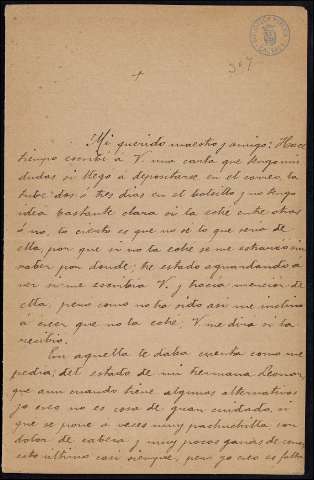 307
+
Mi querido maestro y amigo: Hace
tiempo escribí á V. una carta que tengo mis
dudas si llegó a depositarse en el correo, la
tube dos ó tres días en el bolsillo y no tengo
idea bastante clara si la eché entre otras
ó no, lo cierto es que no sé lo que sería de
ella, por que si no la eché se me extravió sin
saber por donde; he estado aguardando á
ver si me escribía V. y hacía mención de
ella, pero como no ha sido así me inclino
á creer que no la eché, V. me dirá si la
recibió.
En aquella le daba cuenta como me
pedía, del estado de mi hermana Leonor
que aun cuando tiene algunas alternativas
yo creo no es cosa de gran cuidado,
que se pone á veces muy pachuchilla con
dolor de cabeza y muy pocas ganas de comer,
esto último casi siempre, pero yo creo es falta